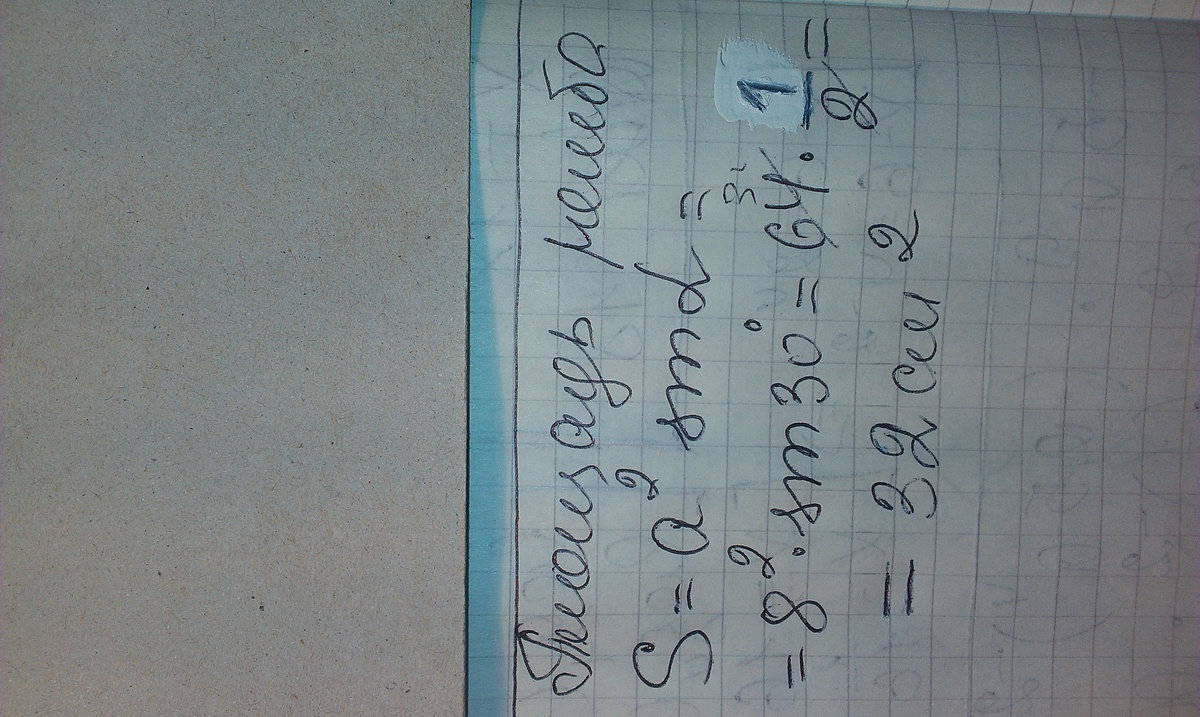 Площадь ромба
S = a² sin α =
= 8² · sin 30° = 64 · 1/2 =
= 32 см²